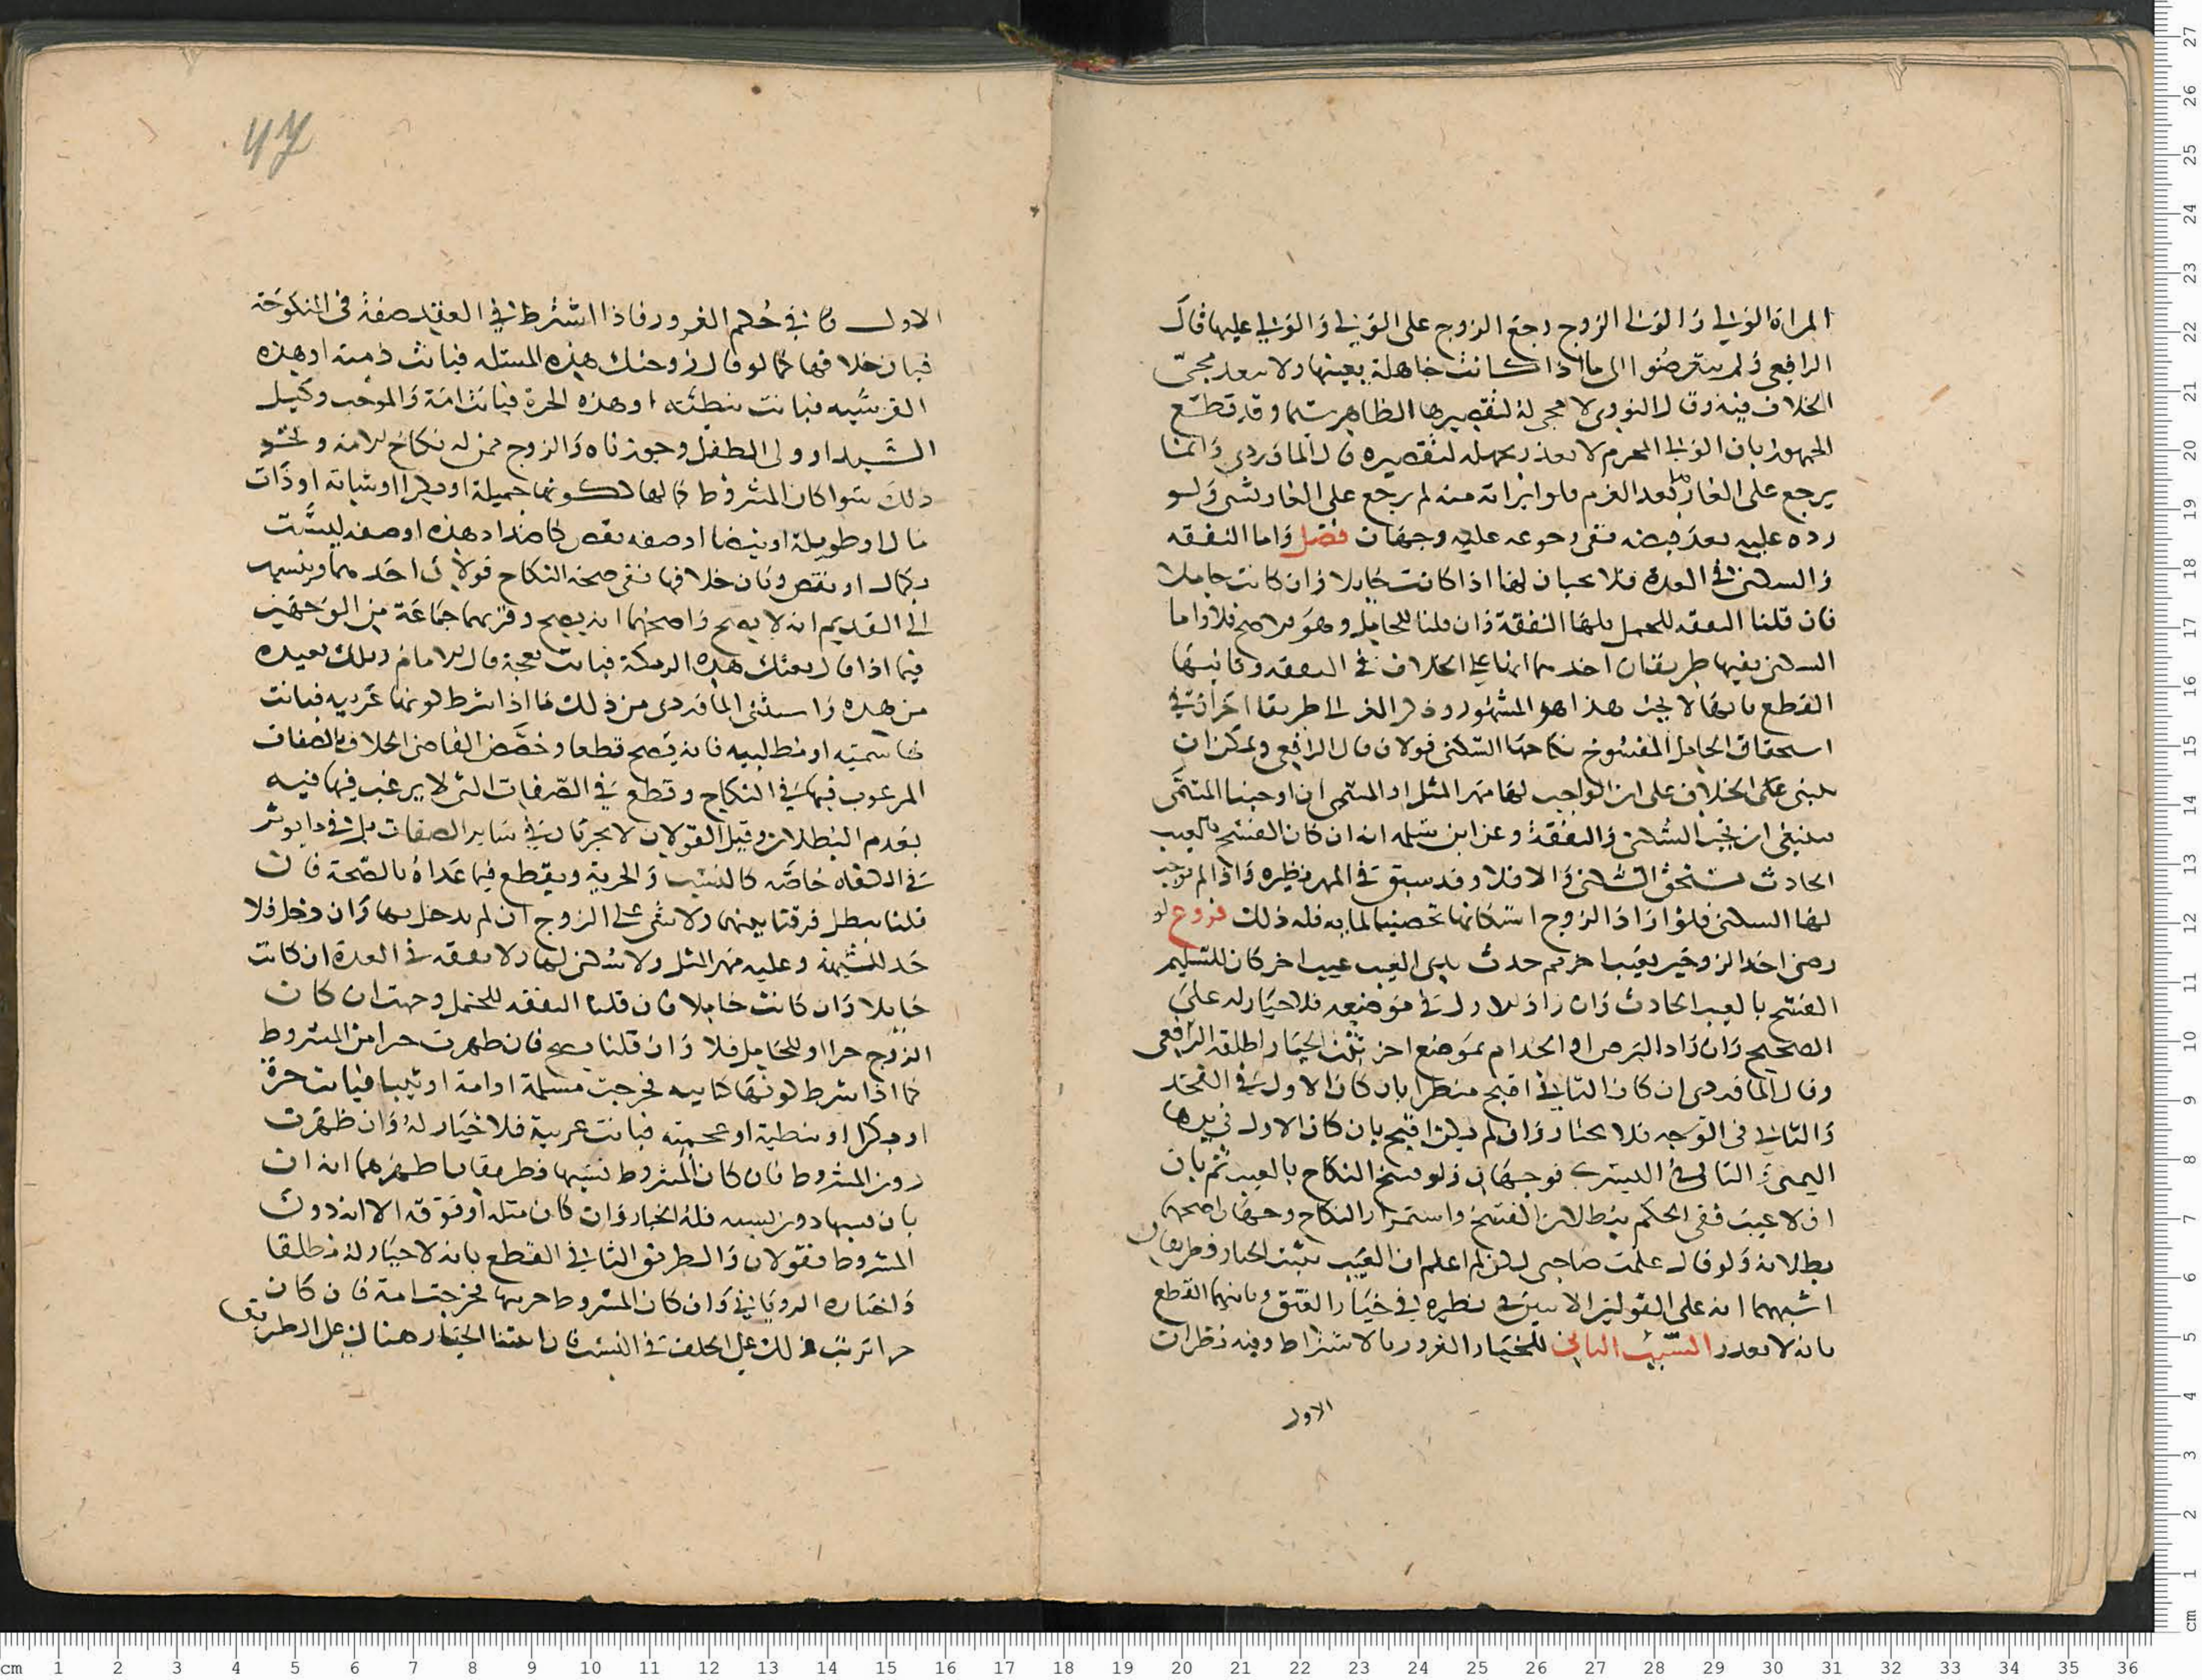 المراة الولي والولي الزوج رجع الزوج على الولي والولي عليها قال
الرافعي ولم يتعرضوا الى ما اذا كانت جاهلة بعيبها ولا يبعد مجئ
الخلاف فيه وقال النووي لا مجي له لتقصيرها الظاهر وقد قطع
الجمهور بان الولي المحرم لا يعذر بجهله لتقصيره قال الماوردي وانما
يرجع على الغار بعد الغرم فلو ابراته منه لم يرجع على الغار بشي ولو
رده عليه بعد قبضه ففي رجوعه عليه وجهان فصل واما النفقه
والسكني في العدة فلا يجبان لها اذا كانت حايلا وان كانت حاملا
فان قلنا النفقه للحمل فلها النفقة وان قلنا للحامل وهو الاصح فلا واما
السكني ففيها طريقان احدهما انها على الخلاف في النفقه وثانيها
القطع بانها لا تجب هذا هو المشهور وذكر الغزالي طريقا اخر ان في
استحقاق الحامل المفسوخ نكاحها السكني قولان قال الرافعي ويمكن ان
يبنى على الخلاف على ان الواجب لها مهر المثل او المسمى ان اوجبنا المسمى
فينبغي ان تجب السكنى والنفقة وعن ابن سلمه انه ان كان الفسخ بالعيب
الحادث تستحق السكنى والا فلا وقد سبق في المهر نظيره واذا لم توجب
لها السكنى فلو اراد الزوج اسكانها تحصينا لمايه فله ذلك فروع لو
رضي احد الزوجين بعيب اخر ثم حدث بذي العيب عيب اخر كان للسليم
الفسخ بالعيب الحادث وان زاد الاول في موضعه فلا خيار له على
الصحيح وان زاد البرص او الجذام بموضع اخر يثبت الخيار اطلقه الرافعي
وقال الماوردي ان كان الثاني اقبح منظرا بان كان الاول في الفخذ
والثاني في الوجه فلا يختار وان لم يكن اقبح بان كان الاول في يدها
اليمنى والثاني في اليسرى فوجهان ولو فسخ النكاح بالعيب ثم بان
ان لا عيب ففي الحكم ببطلان الفسخ واستمرار النكاح وجهان اصحهما
بطلانه ولو قال علمت صاحبي لكن لم اعلم ان العيب يثبت الخيار فطريقان
اشبههما انه على القولين الاتيين في نظيره في خيار العتق وثانيهما القطع
بانه لا يعذر السبب الثاني للخيار الغرور بالاشتراط وفيه نظران
الاول
47
الاول في حكم الغرور فاذا اشترط في العقد صفة في المنكوحة
فبان خلافها كما لو قال زوجتك هذه المسلمه فبانت ذمية او هذه
القرشيه فبانت نبطيه او هذه الحرة فبانت امة والموجب وكيل
السيد او ولي الطفل وجوزناه والزوج ممن له نكاح الامة ونحو
ذلك سوا كان المشروط كمالها ككونها جميلة او بكرا او شابة او ذات
مال او طويلة او بيضا او صفه نقص كاضداد هذه او صفه ليست
بكمال او نقص وبان خلافها ففي صحة النكاح قولان احدهما وينسب
الى القديم انه لا يصح واصحهما انه يصح وقربهما جماعة من الوجهين
فيما اذا قال بعتك هذه الرمكة فبانت نعجة قال الامام وتلك بعيده
من هذه واستثنى الماوردي من ذلك ما اذا شرط كونها عربيه فبانت
هاشميه او مطلبيه فانه يصح قطعا وخصص القاضي الخلاف بالصفات
المرغوب فيها في النكاح وقطع في الصفات التي لا يرغب فيها فيه
بعدم البطلان وقيل القولان لا يجريان في ساير الصفات بل في ما يوثر
في الكفاه خاصة كالنسب والحرية ويقطع فيما عداه بالصحة فان
قلنا يبطل فرقنا بينهما ولا شي على الزوج ان لم يدخل بها وان دخل فلا
حد للشبهة وعليه مهر المثل ولا سكنى لها ولا نفقه في العدة ان كانت
حايلا وان كانت حاملا فان قلنا النفقه للحمل وجبت ان كان
الزوج حرا او للحامل فلا وان قلنا يصح فان ظهرت خيرا من المشروط
كما اذا شرط كونها كتابيه فخرجت مسلمة او امة او ثيبا فبانت حرة
او بكرا او نبطية او عجميه فبانت عربية فلا خيار له وان ظهرت
دون المشروط فان كان المشروط نسبها فطريقان اظهرهما انه ان
بان نسبها دون نسبه فله الخيار وان كان مثله او فوقه الا انه دون
المشروط فقولان والطريق الثاني القطع بانه لا خيار له مطلقا
واختاره الروياني وان كان المشروط حريتها فخرجت امة فان كان
حرا ترتب ذلك على الخلف في النسب فان اثبتنا الخيار هناك فعلى الطريق